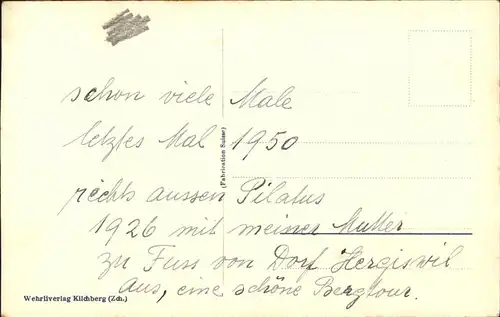 schon viele Male
letztes Mal 1950
rechts aussen Pilatus
1926 mit meiner Mutter
zu Fuss von Dorf Hergiswil
aus, eine schöne Bergtour.
(Fabrication Suisse)
Wehrliverlag Kilchberg (Zch.)